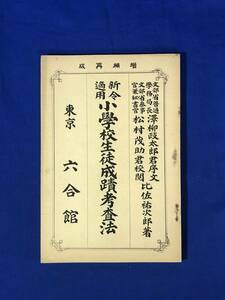 增補再版
文部省普通學務局長澤柳政太郎君序文
文部省參事官兼秘書官松村茂助君校閲 比佐祐次郎著
新令適用小學校生徒成蹟考査法
東京 六合館